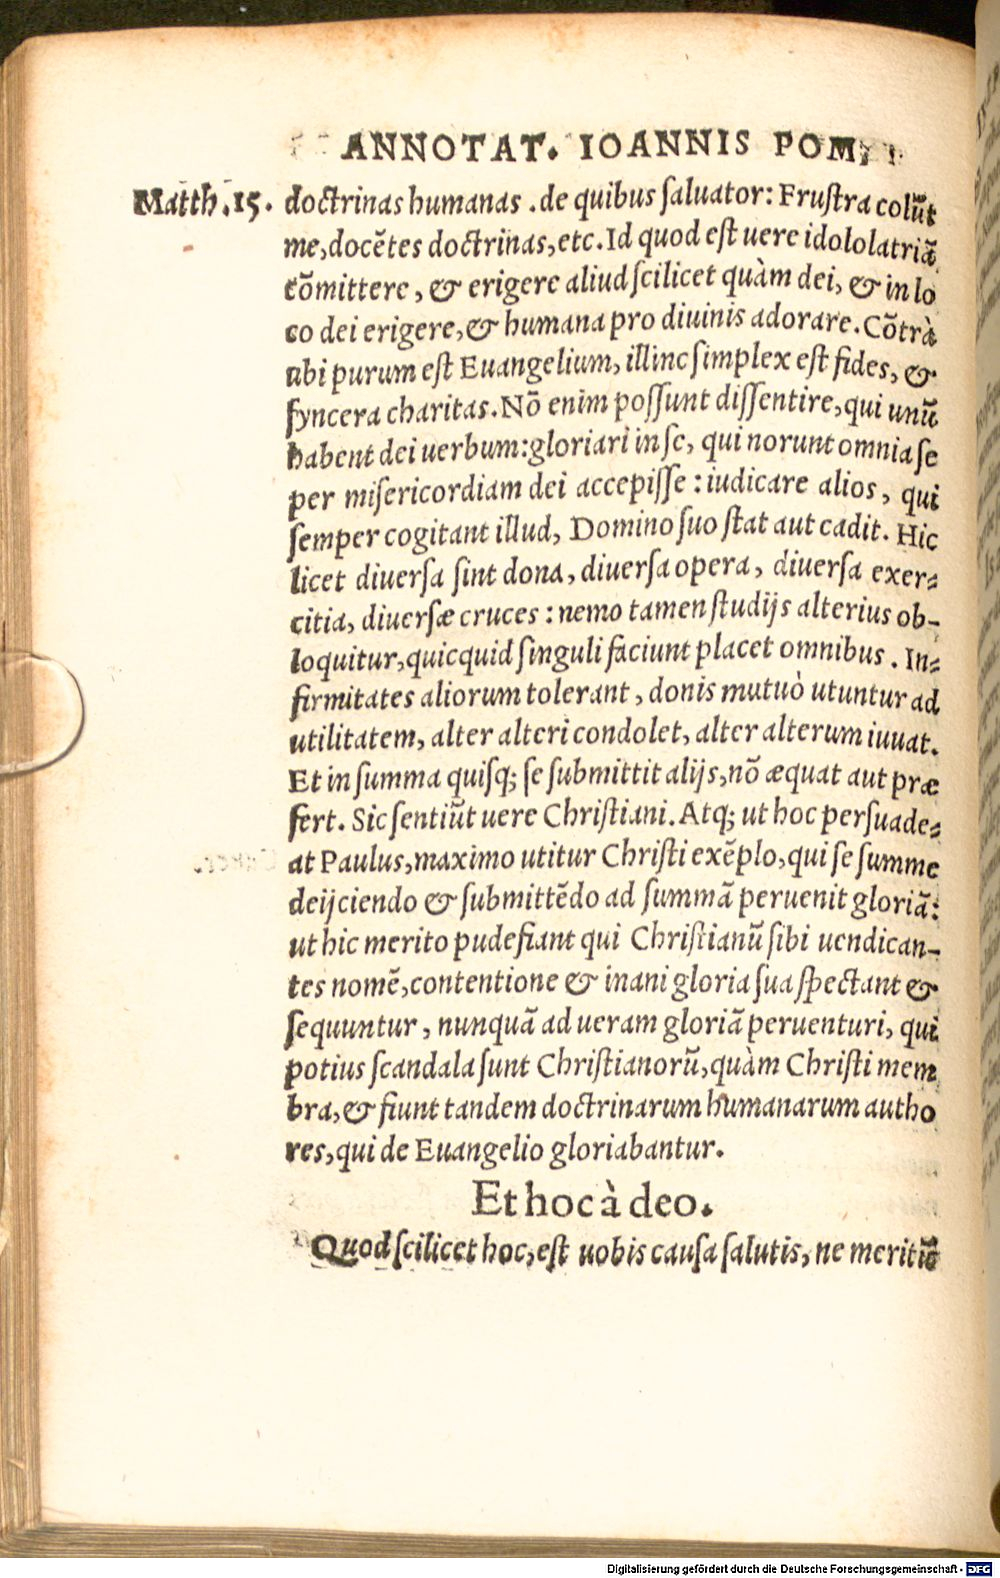 ANNOTAT. IOANNIS POM.
Matth.15. doctrinas humanas .de quibus ſaluator: Fruſtra colũt
me,docẽtes doctrinas,etc.Id quod eſt uere idololatriã
cõmittere, & erigere aliud ſcilicet quàm dei, & in lo
co dei erigere,& humana pro diuinis adorare.Cõtrà
ubi purum eſt Euangelium, illinc ſimplex eſt fides, &
ſyncera charitas.Nõ enim poſſunt diſſentire,qui unũ
habent dei uerbum:gloriari in ſe, qui norunt omnia ſe
per miſericordiam dei accepiſſe:iudicare alios, qui
ſemper cogitant illud, Domino ſuo ſtat aut cadit. Hic
licet diuerſa ſint dona, diuerſa opera, diuerſa exer⸗
citia, diuerſæ cruces: nemo tamen ſtudijs alterius ob-
loquitur,quicquid ſinguli faciunt placet omnibus. In⸗
firmitates aliorum tolerant, donis mutuò utuntur ad
utilitatem, alter alteri condolet, alter alterum iuuat.
Et in ſumma quiſq; ſe ſubmittit alijs,nõ æquat aut præ
fert. Sic ſentiũt uere Chriſtiani. Atq; ut hoc perſuade⸗
at Paulus,maximo utitur Chriſti exẽplo,qui ſe ſumme
deijciendo & ſubmittẽdo ad ſummã peruenit gloriã:
ut hic merito pudefiant qui Chriſtianũ ſibi uendican-
tes nomẽ,contentione & inani gloria ſua ſpectant &
ſequuntur, nunquã ad ueram gloriã peruenturi, qui
potius ſcandala ſunt Chriſtianorũ,quàm Chriſti mem
bra,& fiunt tandem doctrinarum humanarum autho
res,qui de Euangelio gloriabantur.
Et hoc à deo.
Quod ſcilicet hoc,eſt uobis cauſa ſalutis, ne meritũ
Digitalisierung gefördert durch die Deutsche Forschungsgemeinschaft - DFG